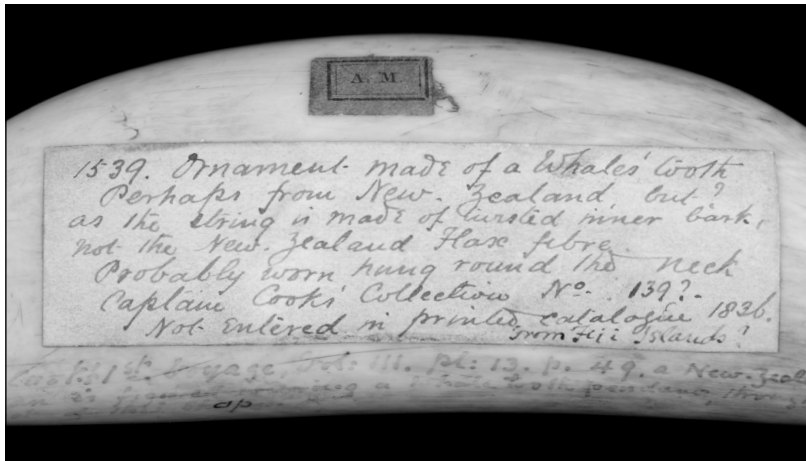 A. M.
1539. Ornament made of a Whales' tooth
Perhaps from New. Zealand, but?
as the string is made of twisted inner bark,
not the New. Zealand Flax fibre.
Probably worn hung round the neck
Captain Cook's Collection No. 139?.
Not Entered in printed catalogue 1836.
From Fiji Islands?
Cook's 1st. Voyage. Vol: III. pl: 13. p. 49. a New. Zeal
a tooth pendant, through
op